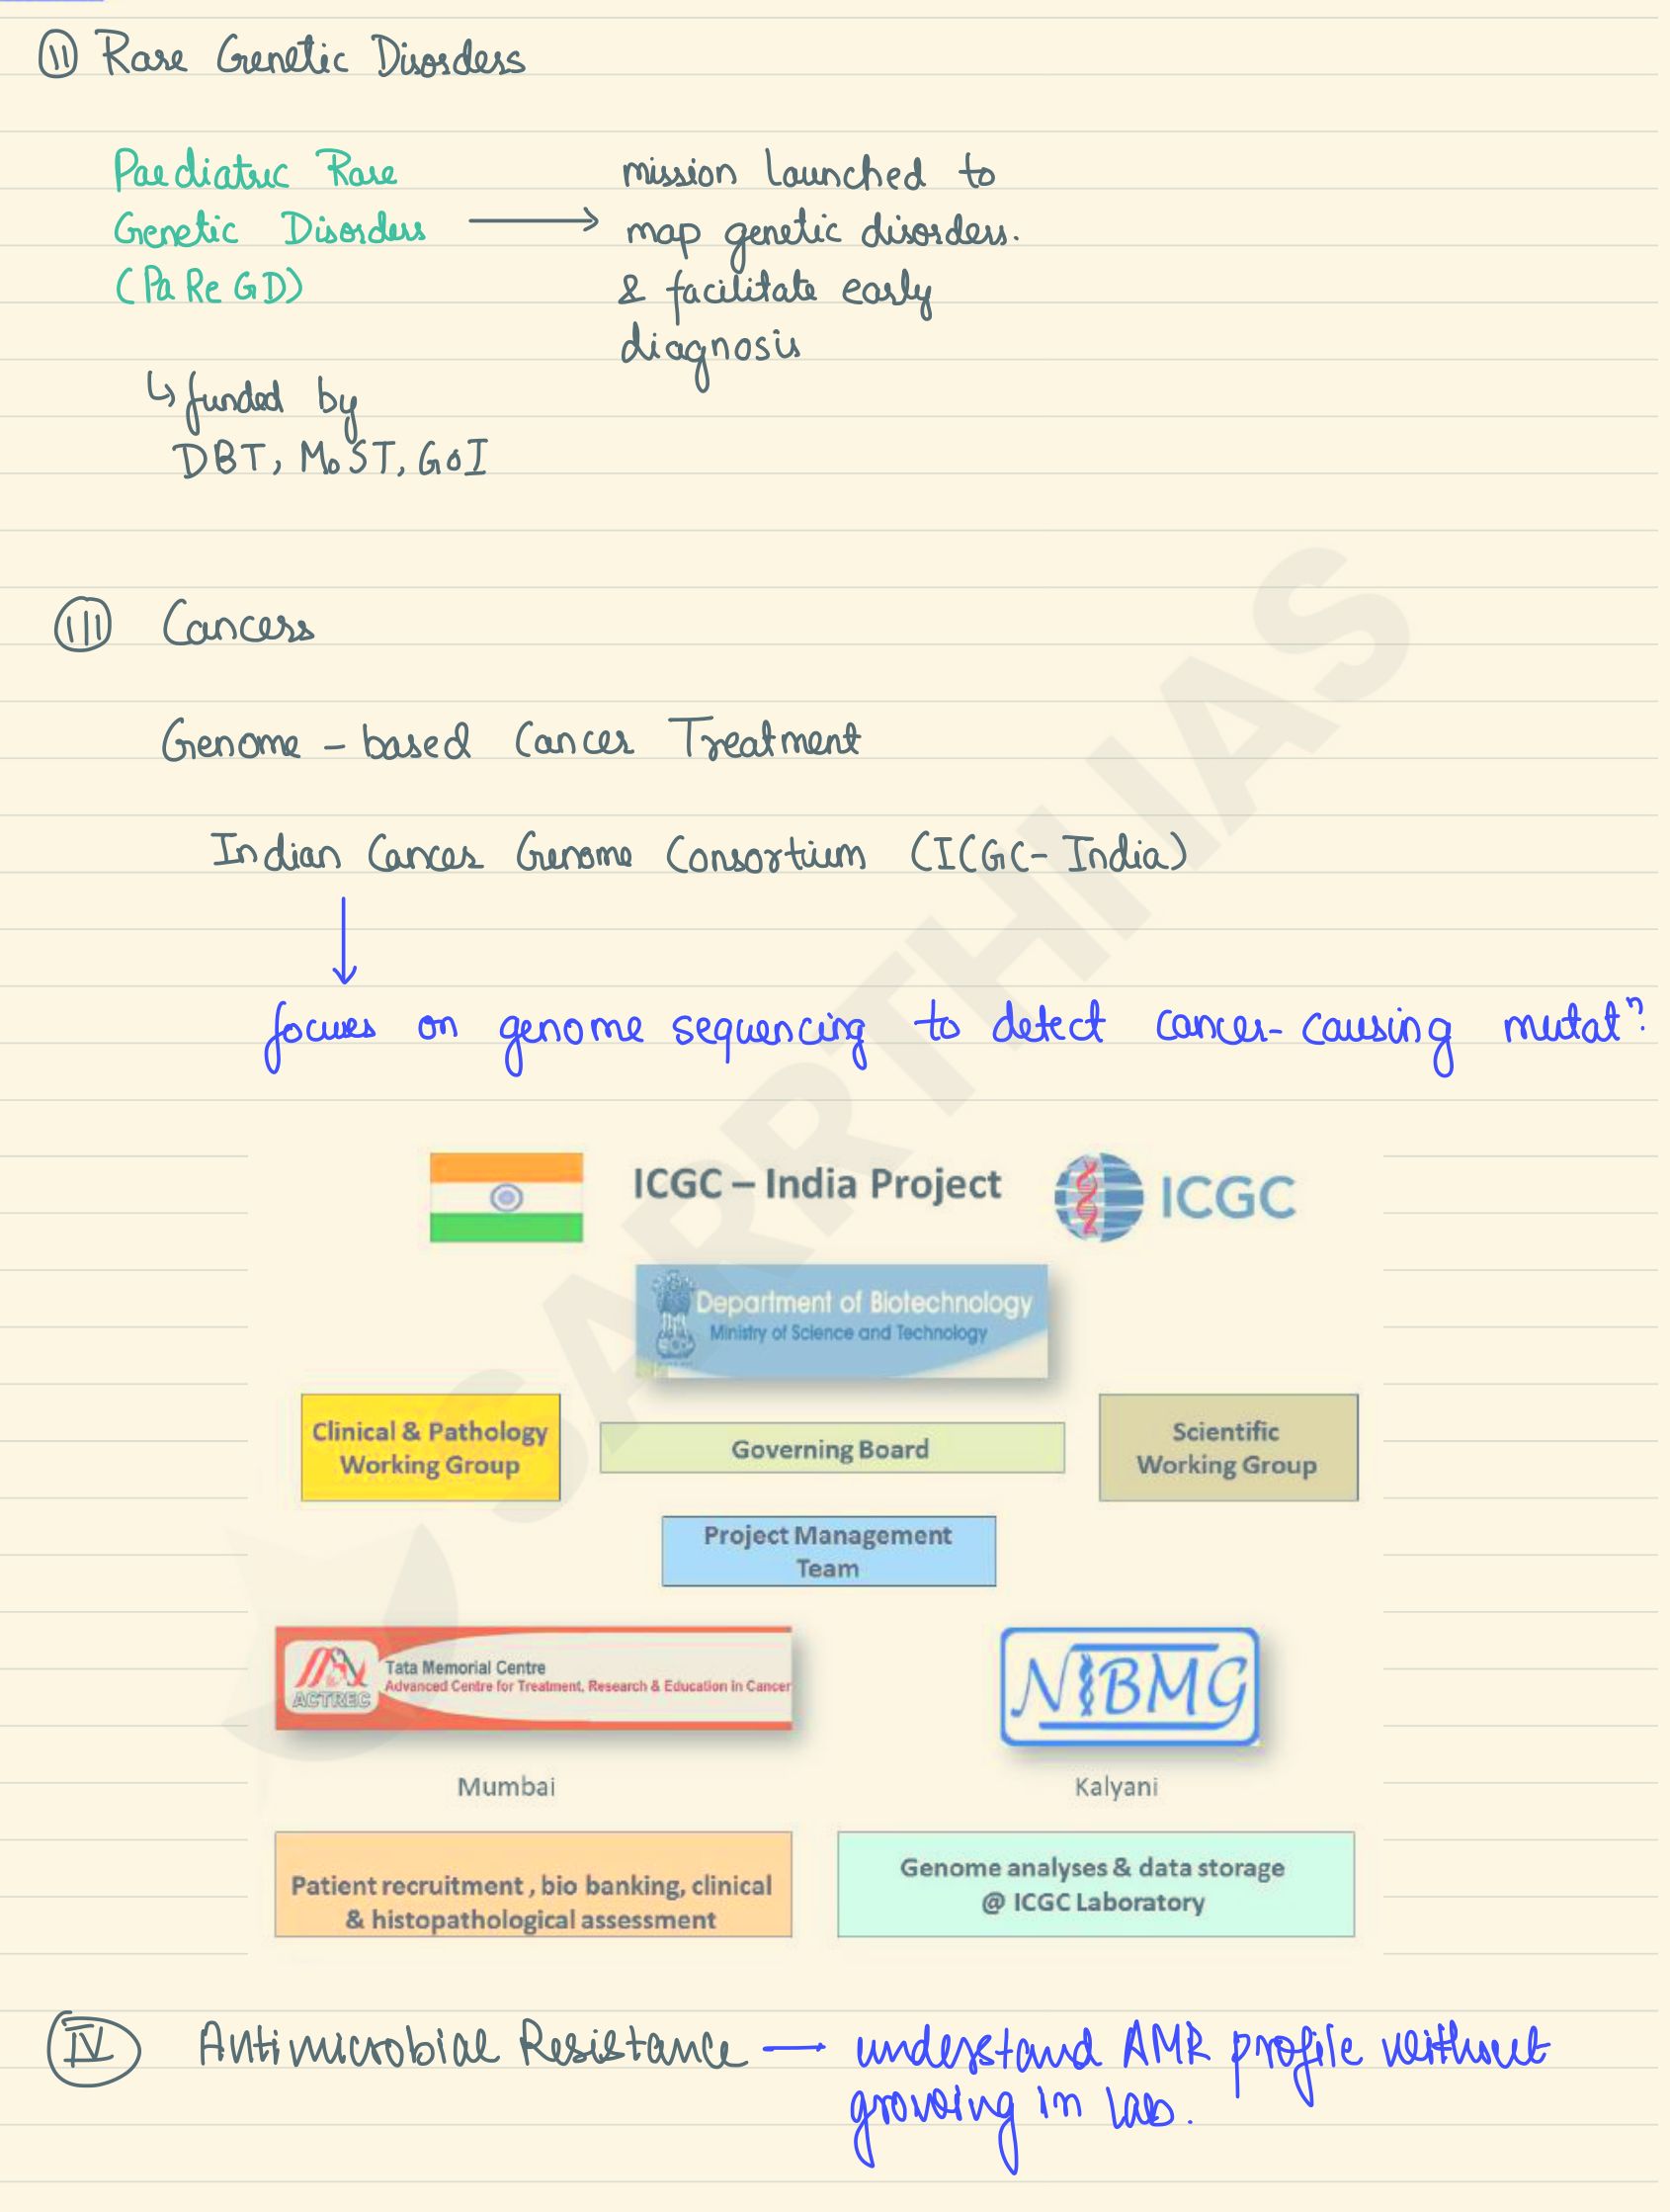 II Rare Genetic Disorders
Paediatric Rare
Genetic Disorders
(PaReGD)
mission launched to
map genetic disorders.
& facilitate early
diagnosis
↳ funded by
DBT, MoST, GoI
III Cancers
Genome - based Cancer Treatment
Indian Cancer Genome Consortium (ICGC-India)
focuses on genome sequencing to detect cancer-causing mutatⁿ.
ICGC – India Project
ICGC
Department of Biotechnology
Ministry of Science and Technology
Clinical & Pathology
Working Group
Governing Board
Scientific
Working Group
Project Management
Team
Tata Memorial Centre
Advanced Centre for Treatment, Research & Education in Cancer
ACTREC
NIBMG
Mumbai
Kalyani
Patient recruitment , bio banking, clinical
& histopathological assessment
Genome analyses & data storage
@ ICGC Laboratory
IV Antimicrobial Resistance — understand AMR profile without
growing in lab.
SARRTHI IAS